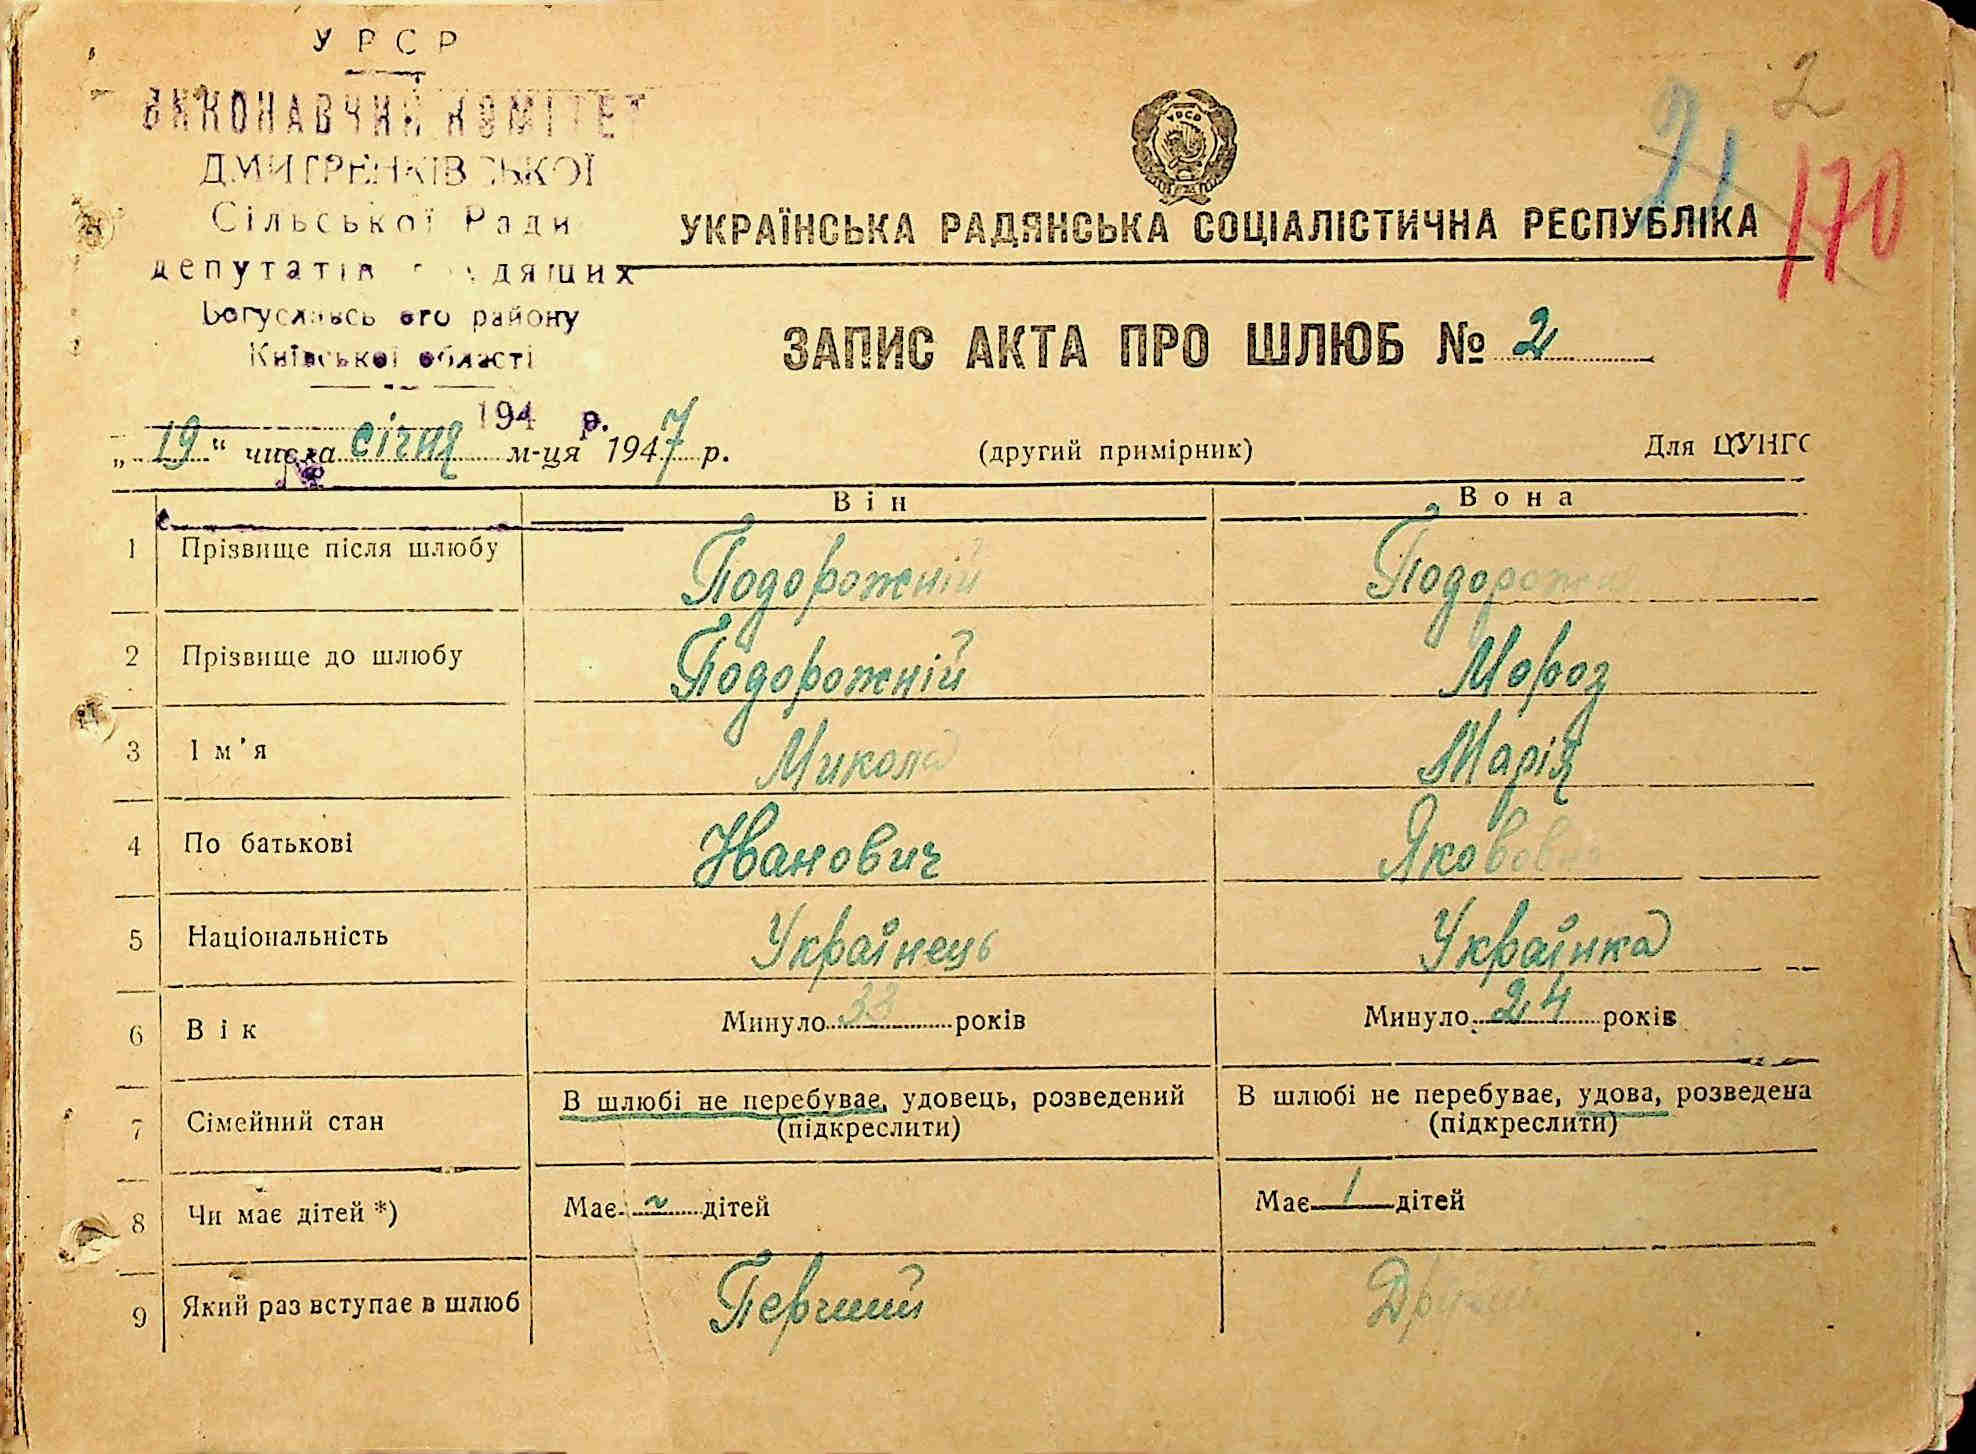 УРСР
ВИКОНАВЧИЙ КОМІТЕТ
ДМИТРЕНКІВСЬКОЇ
Сільської Ради
депутатів трудящих
Богуславського району
Київської області
194 р.
№
2
21
170
УКРАЇНСЬКА РАДЯНСЬКА СОЦІАЛІСТИЧНА РЕСПУБЛІКА
ЗАПИС АКТА ПРО ШЛЮБ № 2
„19“ числа січня м-ця 1947 р. (другий примірник) Для ЦУНГО
Він Вона
1 Прізвище після шлюбу Подорожній Подорожня
2 Прізвище до шлюбу Подорожній Мороз
3 Ім'я Микола Марія
4 По батькові Иванович Якововна
5 Національність Українець Українка
6 Вік Минуло 33 років Минуло 24 років
7 Сімейний стан В шлюбі не перебуває, удовець, розведений В шлюбі не перебуває, удова, розведена
(підкреслити) (підкреслити)
8 Чи має дітей *) Має ~ дітей Має 1 дітей
9 Який раз вступає в шлюб Перший Другий